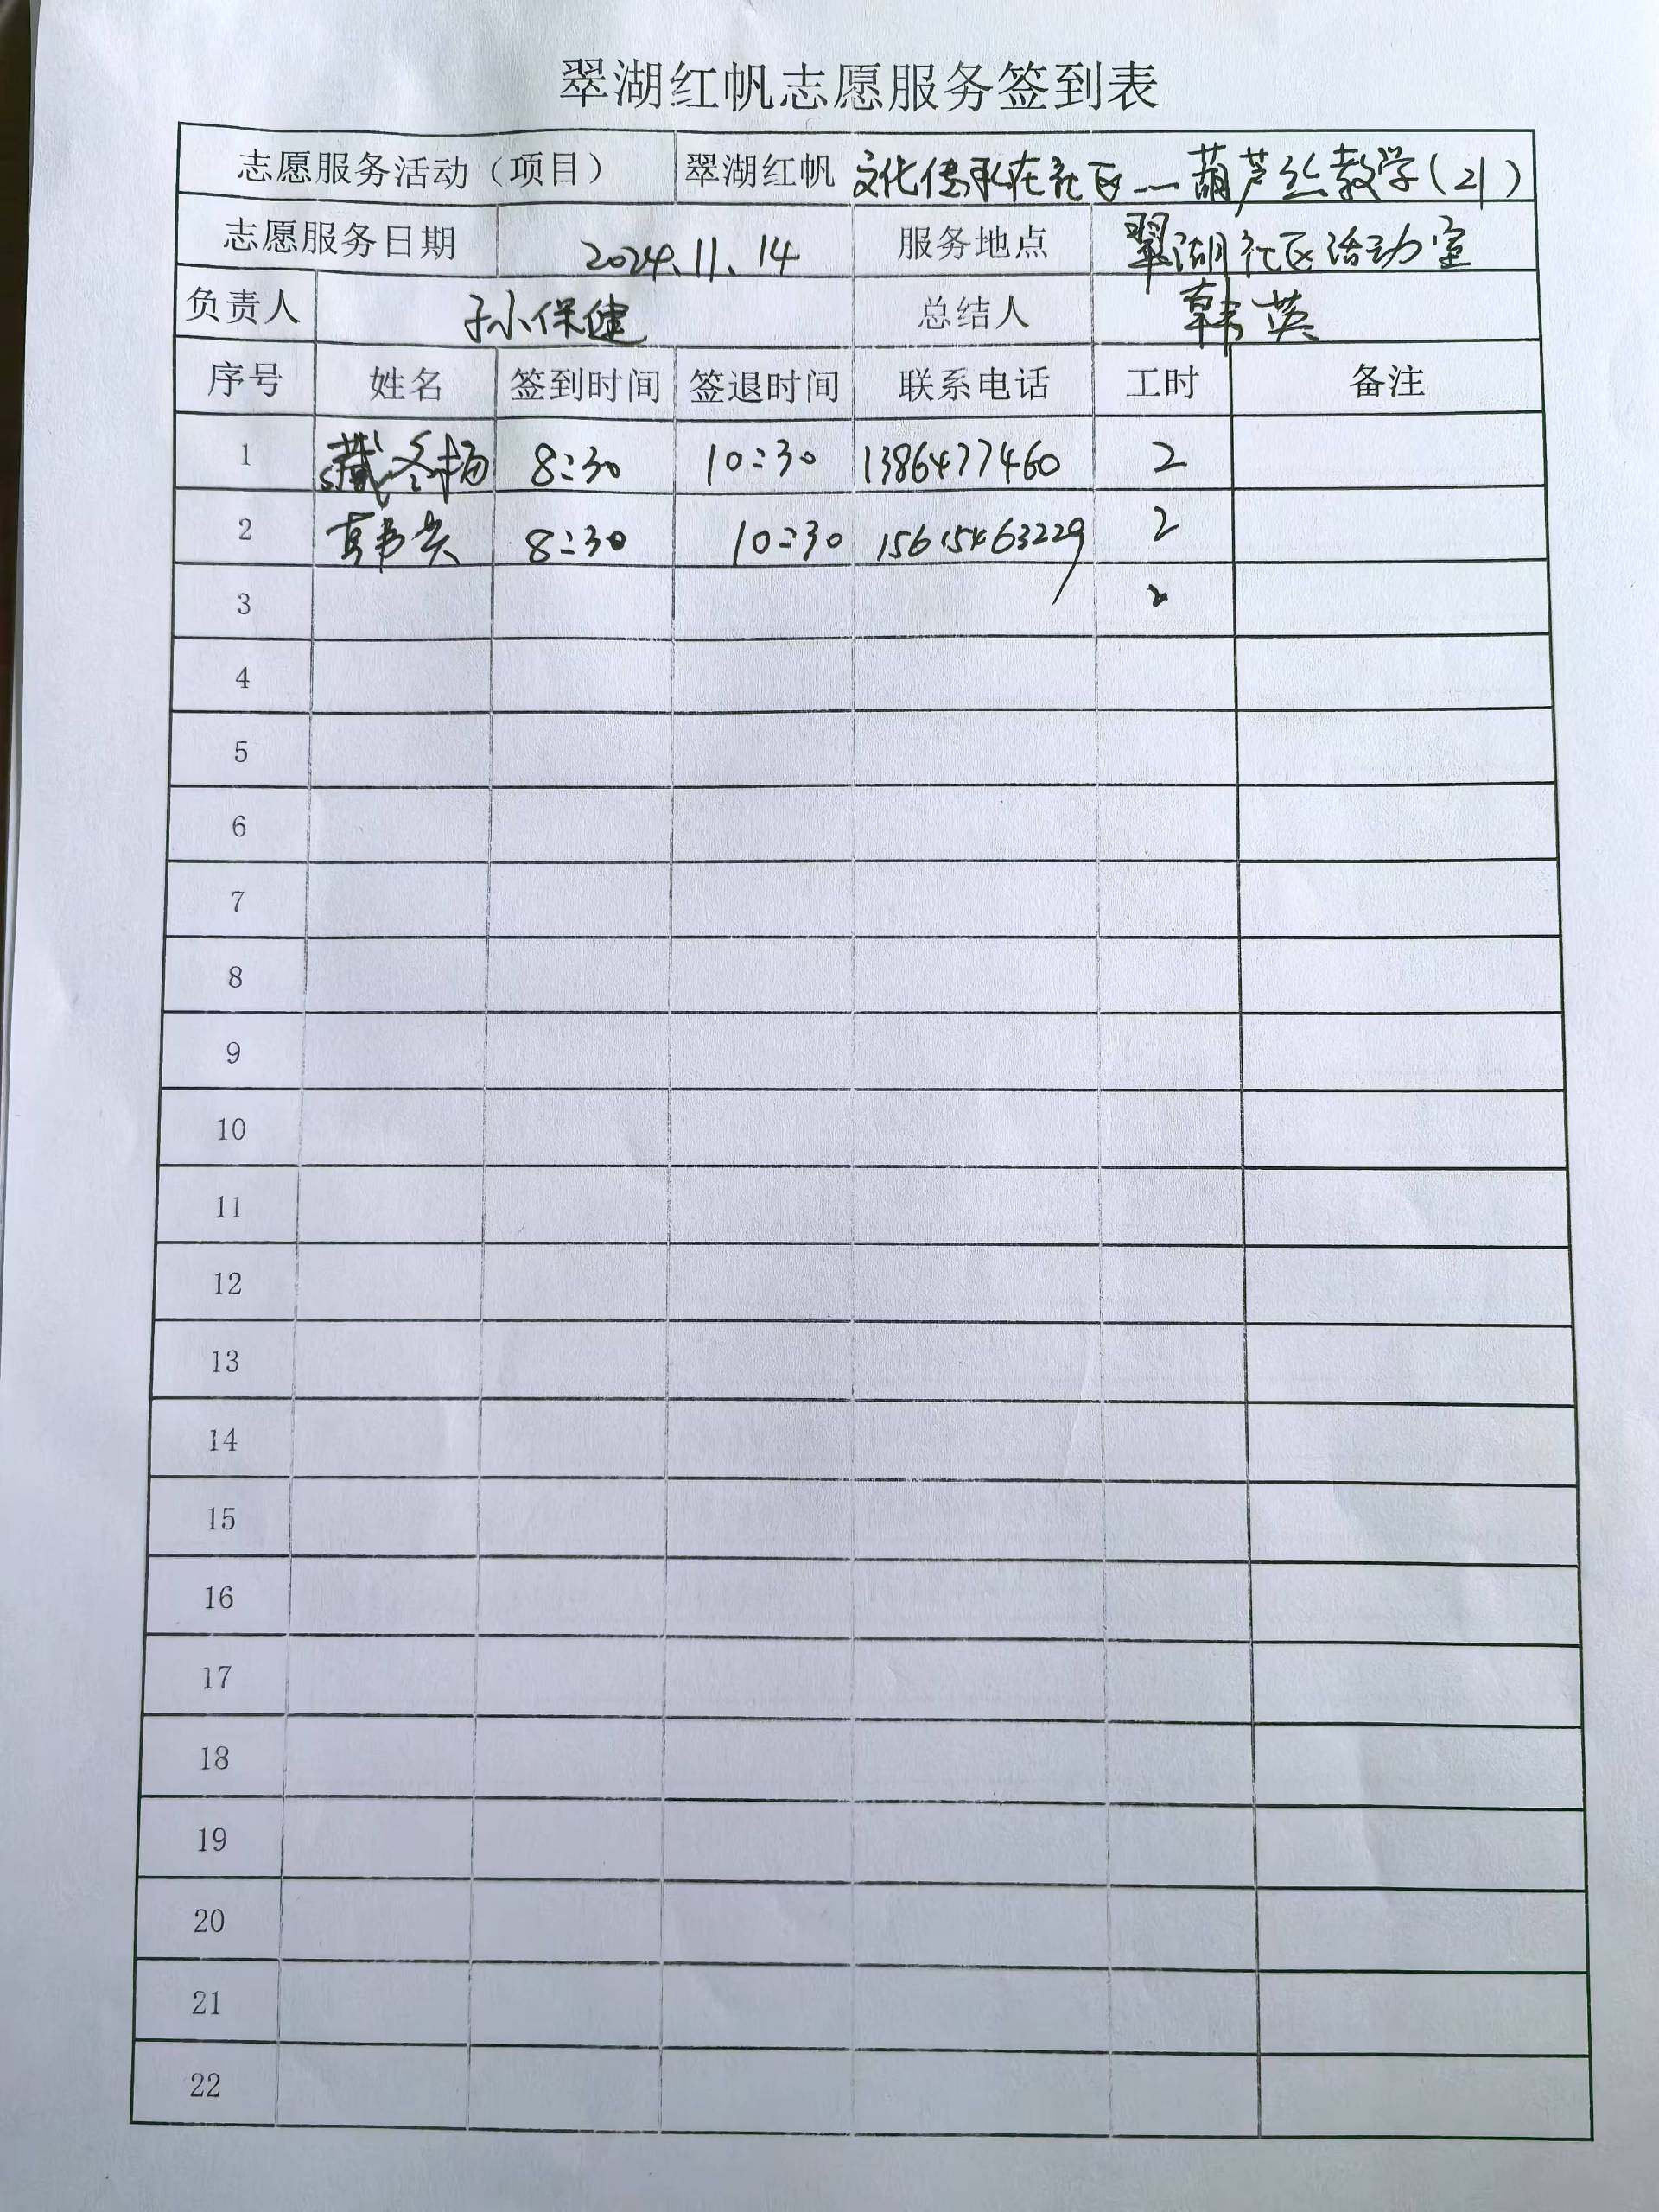 翠湖红帆志愿服务签到表
志愿服务活动（项目） 翠湖红帆 文化传承在社区—葫芦丝教学(21)
志愿服务日期 2024.11.14 服务地点 翠湖社区活动室
负责人 孙保健 总结人 韩英
序号 姓名 签到时间 签退时间 联系电话 工时 备注
1 8:30 10:30 1386477460 2
2 8:30 10:30 15615463229 2
3 2
4
5
6
7
8
9
10
11
12
13
14
15
16
17
18
19
20
21
22